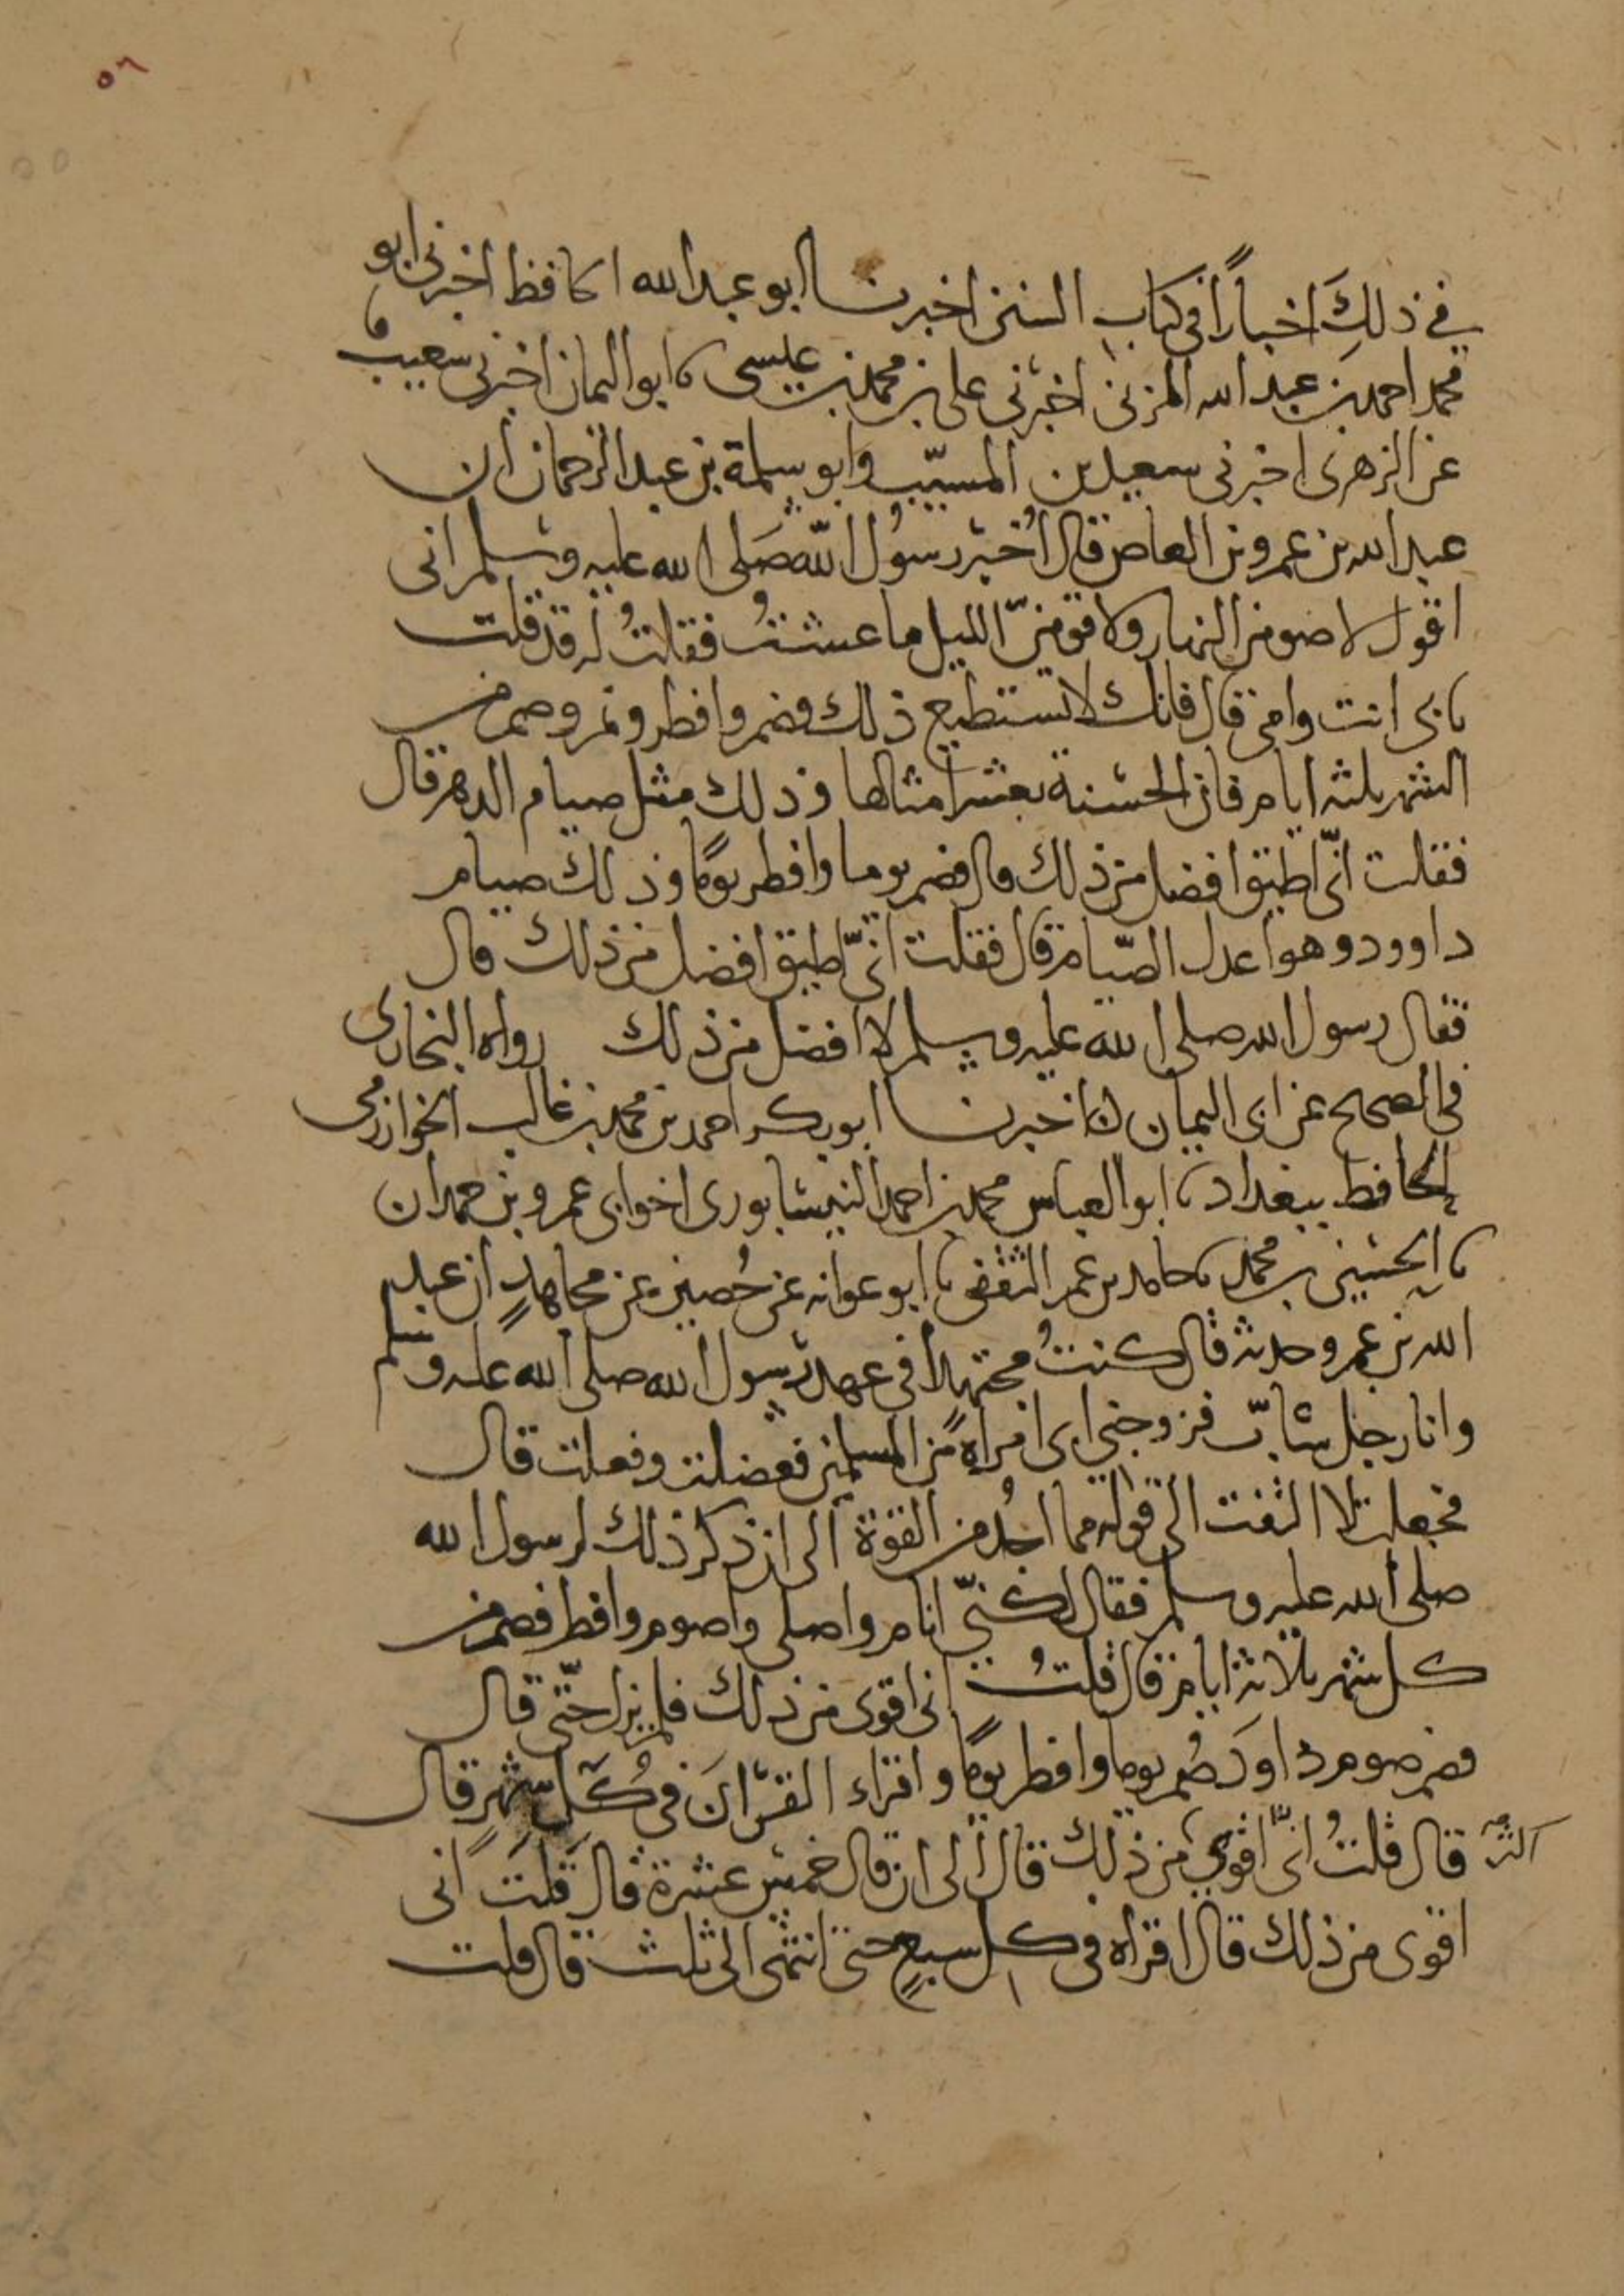 ٥٦
في ذلك اخباراً في كتاب السنن اخبرنا ابو عبد الله الحافظ اخبرني ابو
محمد احمد بن عبد الله المزني اخبرني علي بن محمد بن عيسى نا ابو اليمان اخبرني شعيب
عن الزهري اخبرني سعيد بن المسيّب وابو سلمة بن عبد الرحمان ان
عبد الله بن عمرو بن العاص قال اُخبر رسولُ الله صَلى الله عليه وسلم اني
اقول لاصومن النهار ولاقومنّ الليل ما عشتُ فقلتُ له قد قلت
بابي انت وامي قال فانك لا تستطيع ذلك فصم وافطر ونم وصم من
الشهر ثلثة ايام فان الحسنة بعشر امثالها وذلك مثل صيام الدهر قال
فقلت انّي اطيق افضل من ذلك قال فصم يوما وافطر يومًا وذلك صيام
داوود وهو اعدل الصّيام قال فقلت انّي اطيق افضل من ذلك قال
فقال رسول الله صلى الله عليه وسلم لا افضل من ذلك رواه البخاري
في الصحيح عن ابي اليمان اخبرنا ابو بكر احمد بن محمد بن غالب الخوارزمي
الحافظ ببغداد نا ابو العباس محمد بن احمد النيسابوري اخو ابي عمرو بن حمدان
نا الحسين بن محمد نا حامد بن عمر الثقفي نا ابو عوانه عن حُصين عن مجاهدٍ ان عبد
الله بن عمرو حدثه قال كنتُ مجتهدًا في عهد رسول الله صلى الله عليه وسلم
وانا رجل شابّ فزوجني ابي امراةً من المسلمين فعضلت وفعلت قال
فجعلت لا التفت الى قوله مما اجُد من القوة الى ان ذكر ذلك لرسول الله
صلى الله عليه وسلم فقال لكنّي انام واصلي واصوم وافطر فصم من
كل شهر ثلاثة ايام قال قلتُ اني اقوى من ذلك فلم يزل حتّى قال
فصم صوم داودَ صُم يوما وافطر يومًا واقراء القرآنَ في كُلّ شهرٍ قال
اكثر قال قلتُ انّي اقوي من ذلك قال الى ان قال خمس عشرة قال قلتَ اني
اقوى من ذلك قال اقراه في كل سبعٍ حتى انتهى الى ثلث قال قلت